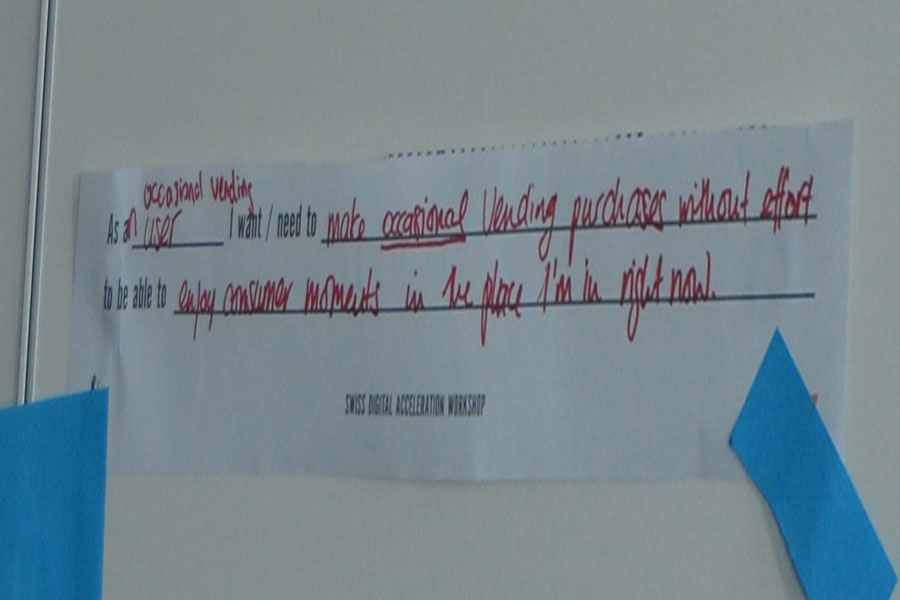 occasional vending
As an user I want / need to make occasional vending purchases without effort
to be able to enjoy consumer moments in the place I'm in right now.
SWISS DIGITAL ACCELERATION WORKSHOP